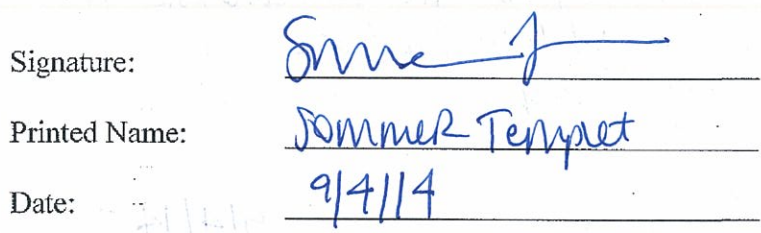 Signature:
Printed Name: Sommer Templet
Date: 9/4/14